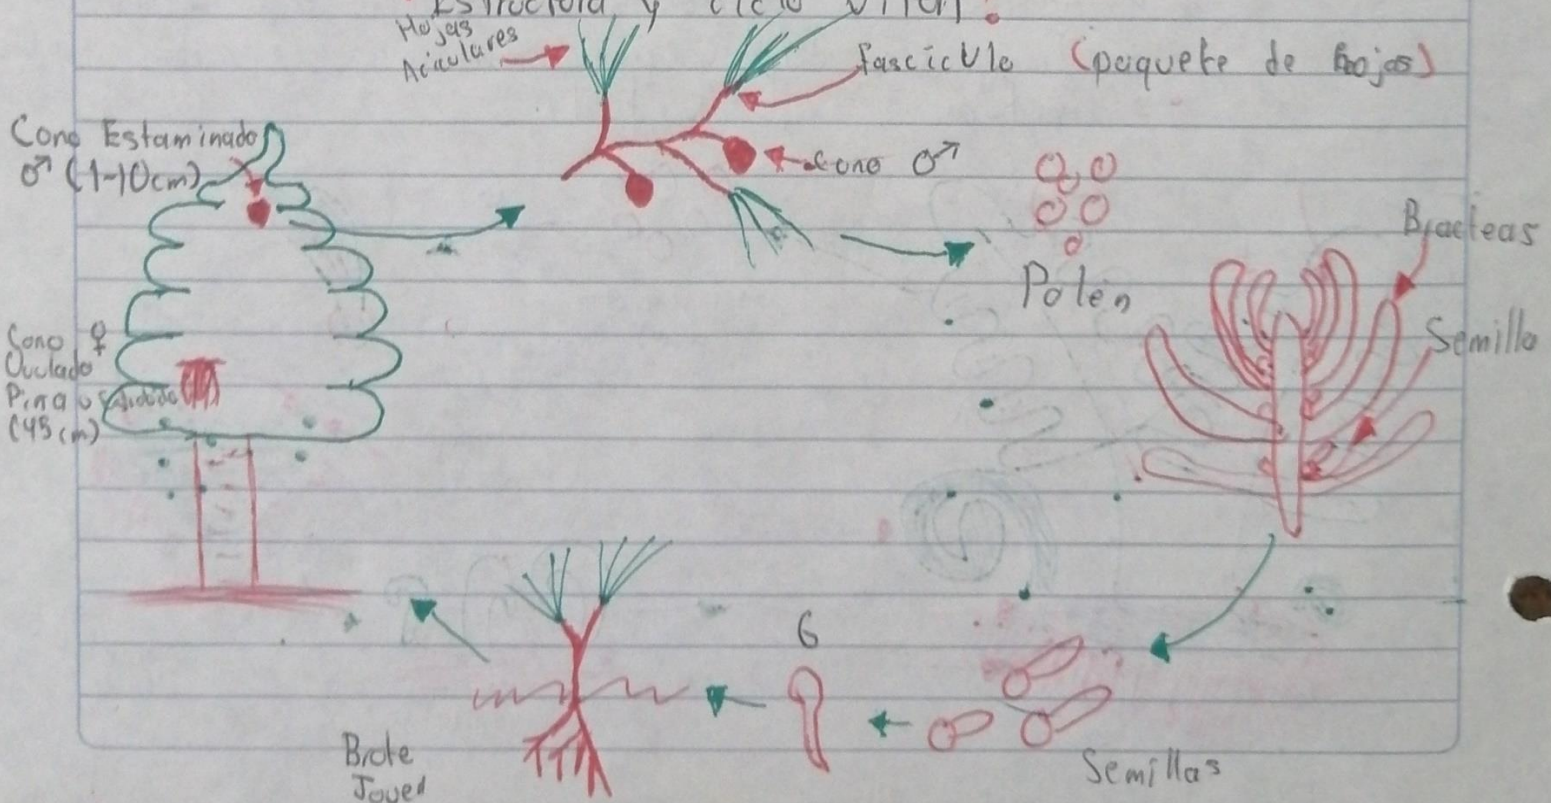 Estructura y ciclo vital.
Hojas
Aciculares
Fascículo (paquete de hojas)
Cono Estaminado
♂ (1-10cm)
Cono ♂
Bracteas
Polen
Semilla
Cono ♀
Ovulado
Pina o
(45 cm)
6
Brote
Joven
Semillas